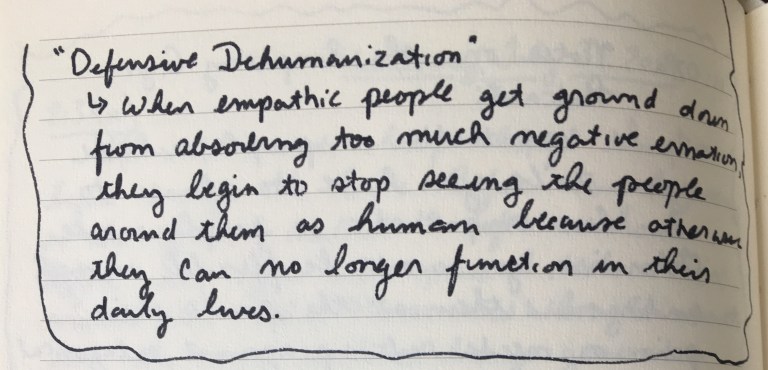 "Defensive Dehumanization"
↳ When empathic people get ground down
from absorbing too much negative emotion,
they begin to stop seeing the people
around them as human because otherwise
they can no longer function in their
daily lives.